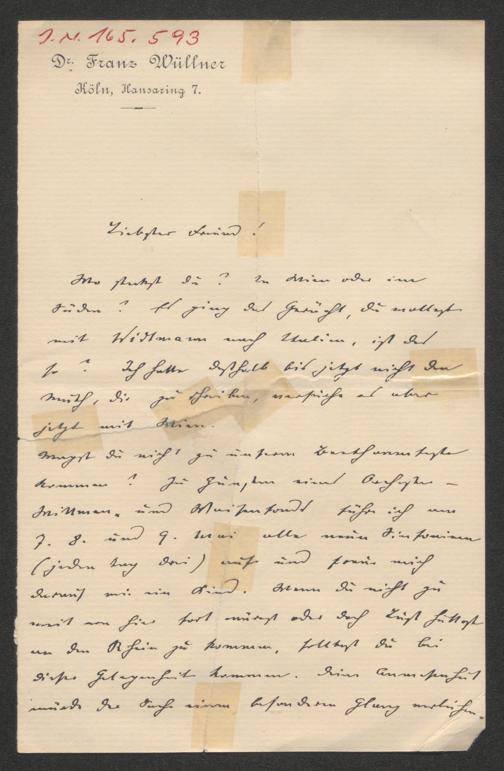 J.N. 165.593
Dr. Franz Wüllner
Köln, Hansaring 7.
Liebster Freund!
Wo steckst du? In Wien oder im
Süden? Es ging das Gerücht, du wolltest
mit Widtmann nach Italien, ist das
so? Ich hatte deßhalb bis jetzt nicht den
Muth, dir zu schreiben, versuche es aber
jetzt mit Wien.
Magst du nicht zu unserm Beethovenfeste
kommen? Zu Gunsten eines Orchester-
Wittwen- und Waisenfonds führe ich am
7. 8. und 9. Mai alle neun Sinfonieen
(jeden Tag drei) auf und freue mich
darauf wie ein Kind. Wenn du nicht zu
weit von hier fort wärest oder doch Lust hättest
an den Rhein zu kommen, solltest du bei
dieser Gelegenheit kommen. Deine Anwesenheit
würde der Sache einen besonderen Glanz verleihen.